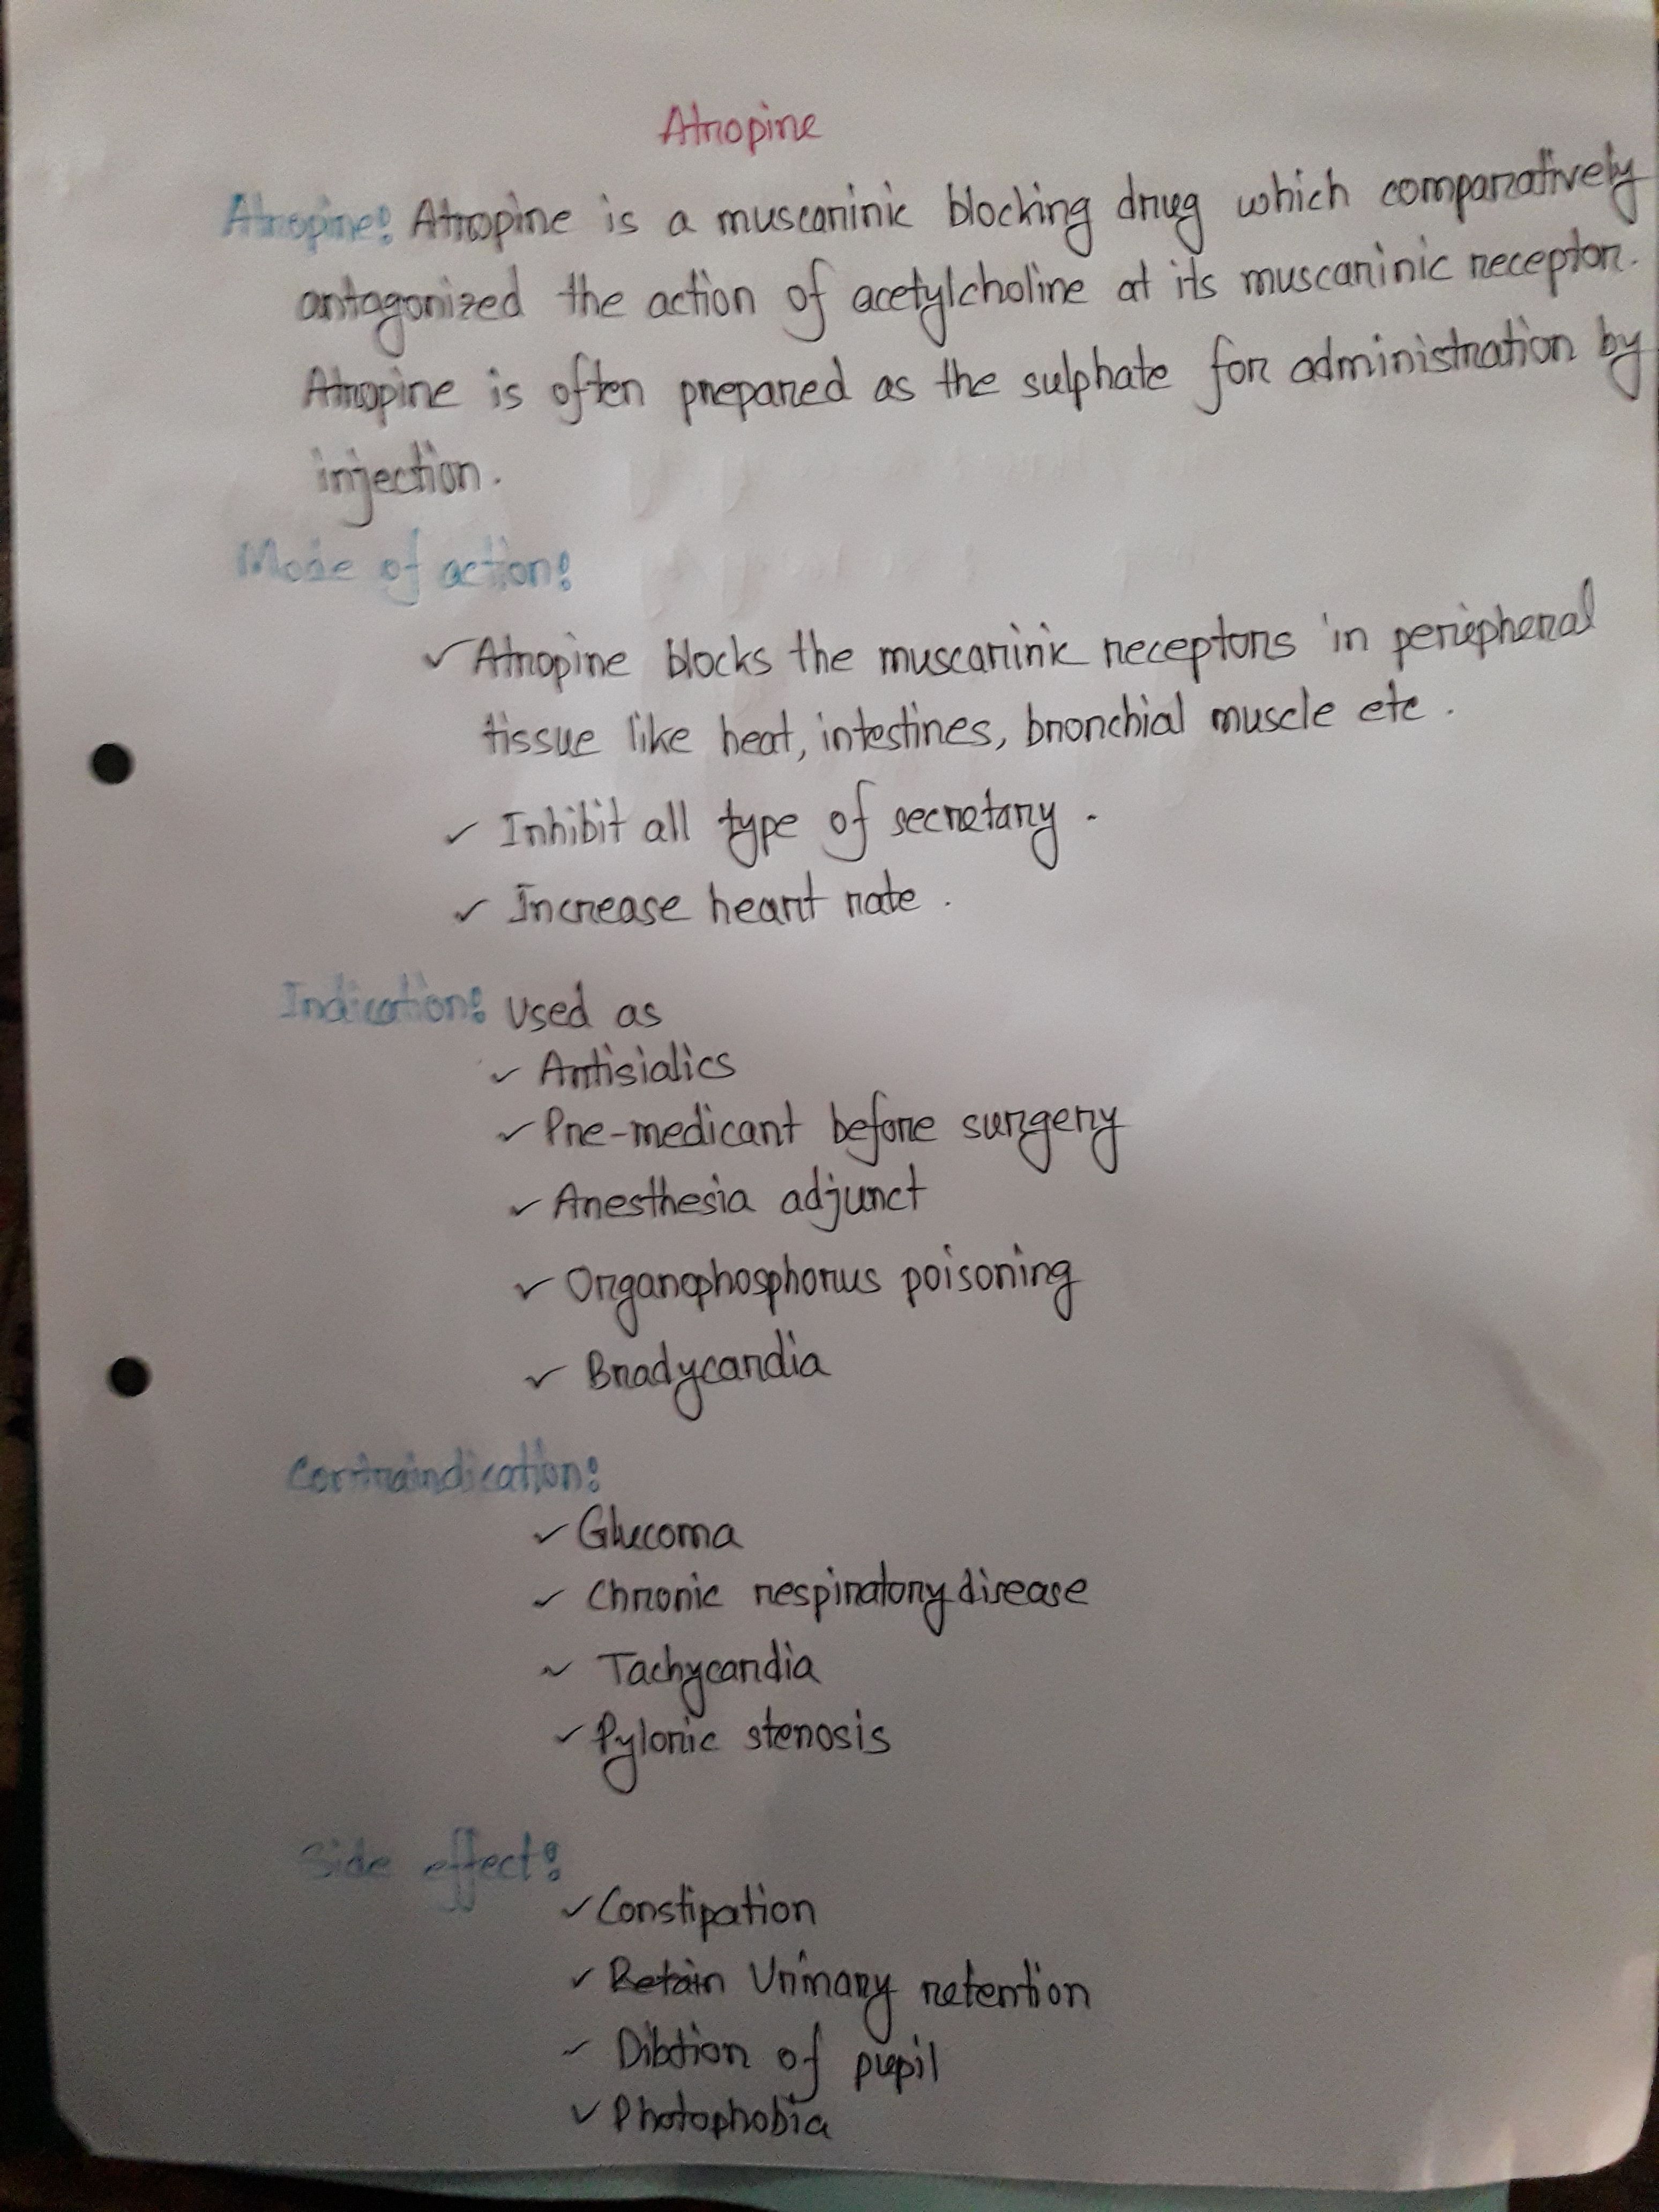 Atropine
Atropine: Atropine is a muscarinic blocking drug which comparatively
antagonized the action of acetylcholine at its muscarinic receptor.
Atropine is often prepared as the sulphate for administration by
injection.
Mode of action:
✓ Atropine blocks the muscarinic receptors in periepheral
tissue like heat, intestines, bronchial muscle etc.
✓ Inhibit all type of secretary.
✓ Increase heart rate.
Indication: Used as
✓ Antisialics
✓ Pre-medicant before surgery
✓ Anesthesia adjunct
✓ Organophosphorus poisoning
✓ Bradycardia
Contraindication:
✓ Glucoma
✓ Chronic respiratory disease
✓ Tachycardia
✓ Pyloric stenosis
Side effect:
✓ Constipation
✓ Retain Urinary retention
✓ Dilation of pupil
✓ Photophobia